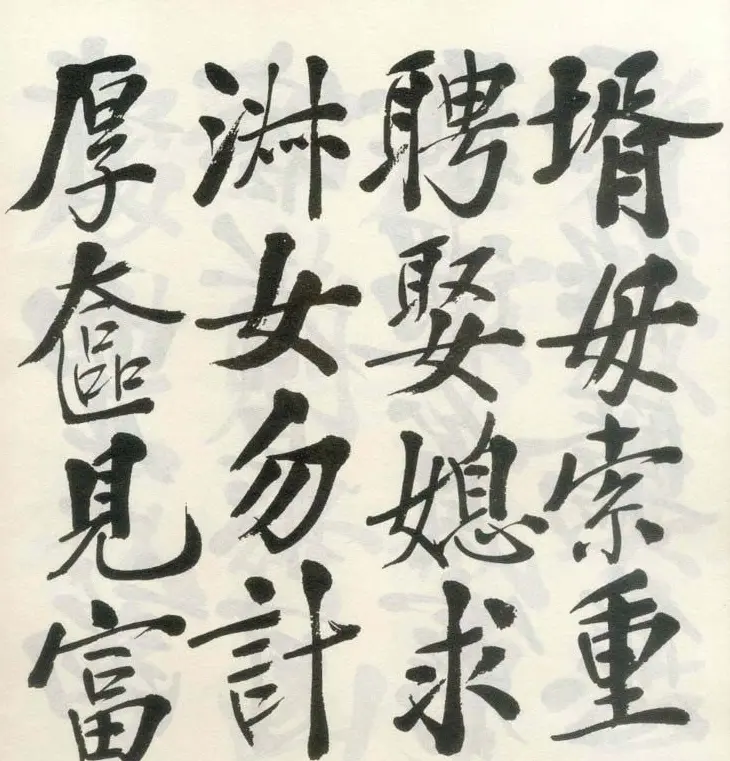 壻毋索重
聘娶媳求
淑女勿計
厚奩見富